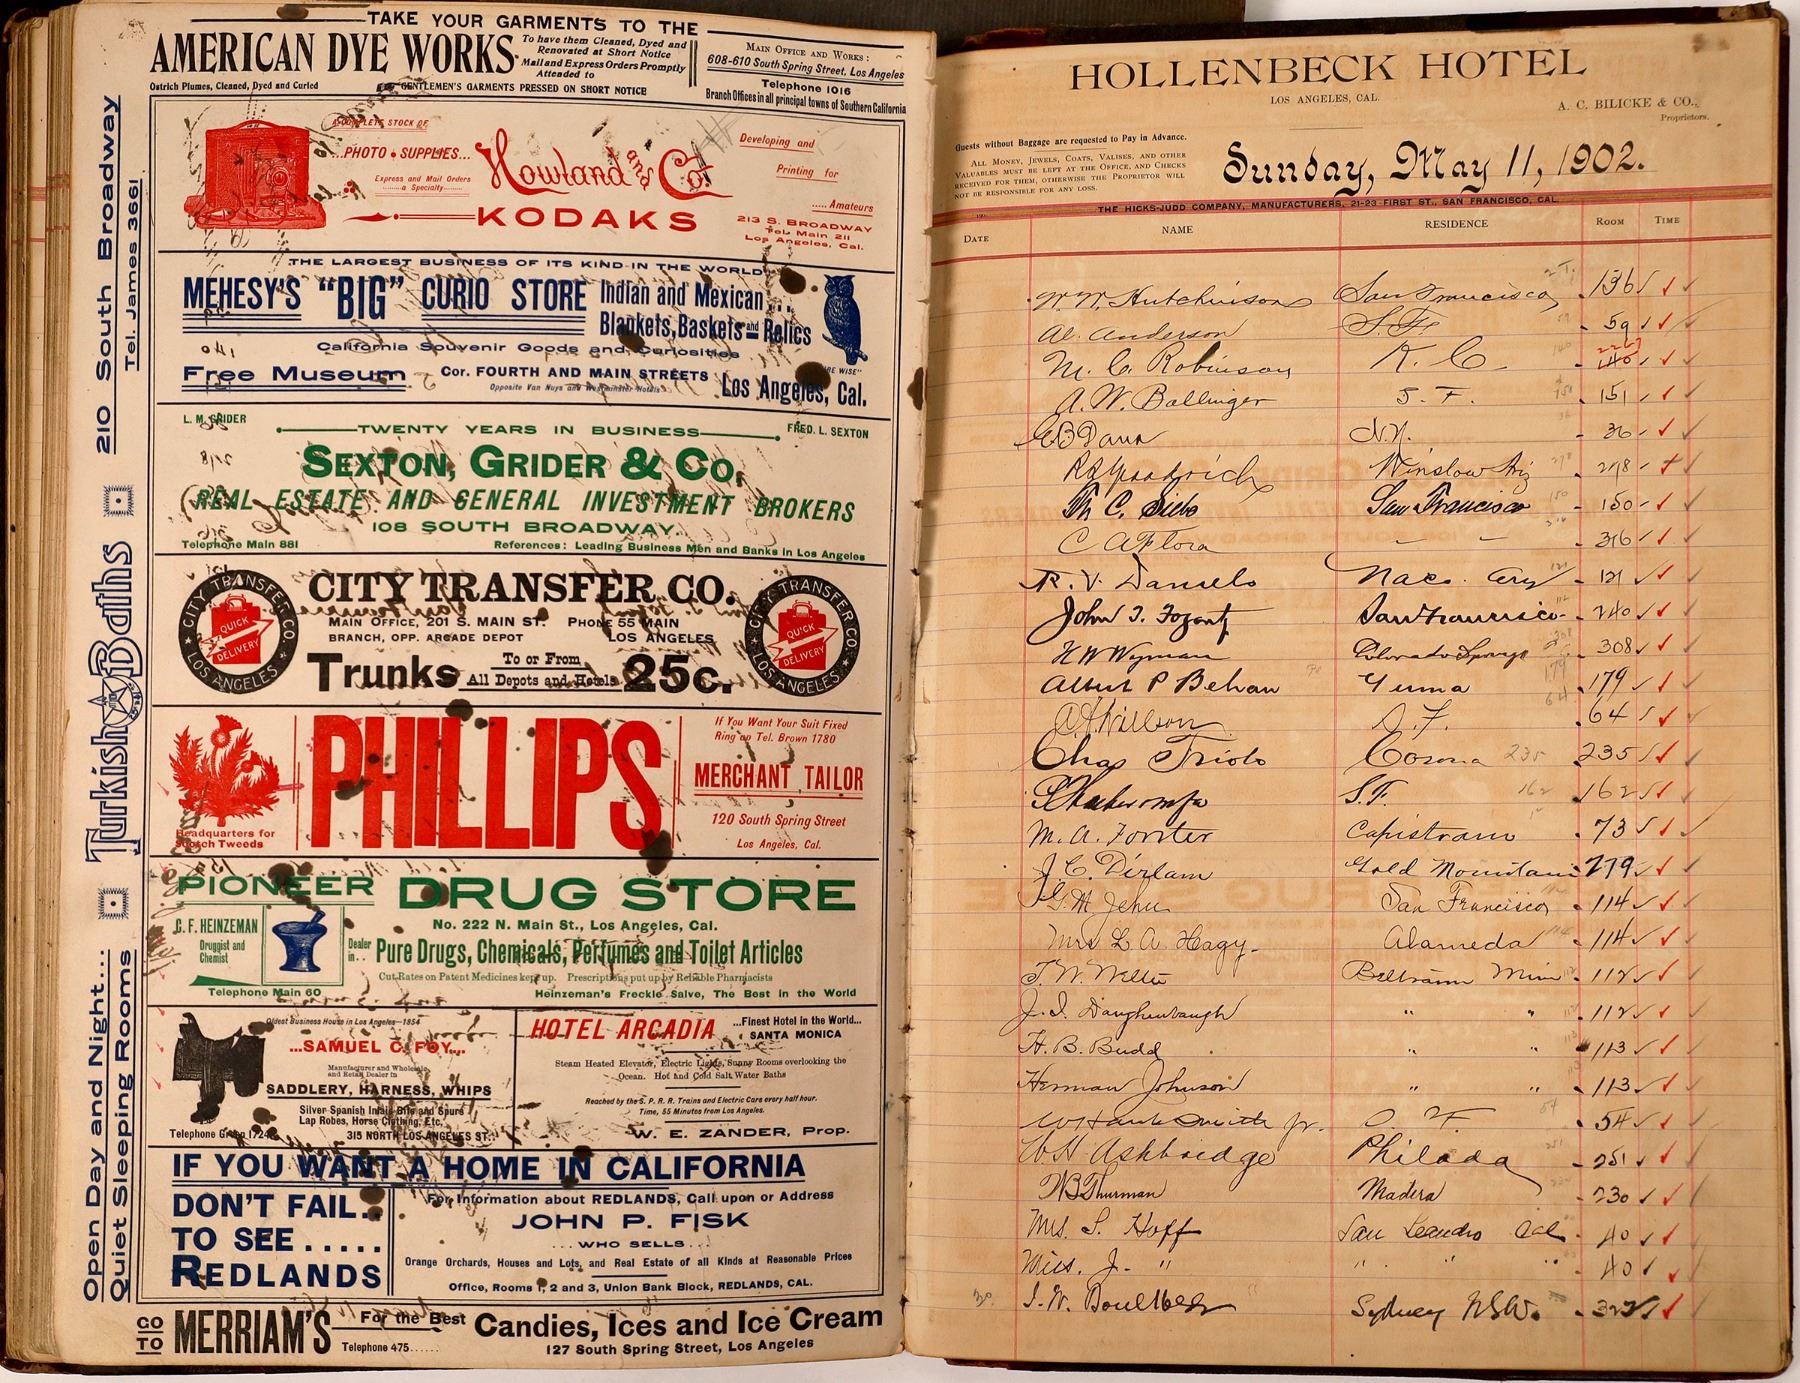 TAKE YOUR GARMENTS TO THE
AMERICAN DYE WORKS
To have them Cleaned, Dyed and
Renovated at Short Notice
Mail and Express Orders Promptly
Attended to
MAIN OFFICE AND WORKS:
608-610 South Spring Street, Los Angeles
Telephone 1016
Branch Offices in all principal towns of Southern California
Ostrich Plumes, Cleaned, Dyed and Curled
GENTLEMEN'S GARMENTS PRESSED ON SHORT NOTICE
210 South Broadway
Tel. James 3661
Turkish Baths
Open Day and Night....
Quiet Sleeping Rooms
A COMPLETE STOCK OF
...PHOTO SUPPLIES...
Express and Mail Orders
a Specialty
Howland and Co.
KODAKS
Developing and
Printing for
..... Amateurs
213 S. BROADWAY
Tel. Main 211
Los Angeles, Cal.
THE LARGEST BUSINESS OF ITS KIND IN THE WORLD
MEHESY'S "BIG" CURIO STORE
Indian and Mexican...
Blankets, Baskets and Relics
California Souvenir Goods and Curiosities
Free Museum
Cor. FOURTH AND MAIN STREETS
Opposite Van Nuys and Westminster Hotels
Los Angeles, Cal.
"BE WISE"
L. M. GRIDER
TWENTY YEARS IN BUSINESS
FRED. L. SEXTON
SEXTON, GRIDER & CO.
REAL ESTATE AND GENERAL INVESTMENT BROKERS
108 SOUTH BROADWAY
Telephone Main 881
References: Leading Business Men and Banks in Los Angeles
CITY TRANSFER CO. LOS ANGELES
QUICK DELIVERY
CITY TRANSFER CO.
MAIN OFFICE, 201 S. MAIN ST. PHONE 55 MAIN
BRANCH, OPP. ARCADE DEPOT LOS ANGELES
Trunks To or From All Depots and Hotels 25c.
CITY TRANSFER CO. LOS ANGELES
QUICK DELIVERY
Headquarters for
Scotch Tweeds
PHILLIPS
If You Want Your Suit Fixed
Ring up Tel. Brown 1780
MERCHANT TAILOR
120 South Spring Street
Los Angeles, Cal.
PIONEER DRUG STORE
C. F. HEINZEMAN
Druggist and
Chemist
No. 222 N. Main St., Los Angeles, Cal.
Dealer in.. Pure Drugs, Chemicals, Perfumes and Toilet Articles
Cut Rates on Patent Medicines kept up. Prescriptions put up by Reliable Pharmacists
Telephone Main 60
Heinzeman's Freckle Salve, The Best in the World
Oldest Business House in Los Angeles—1854
...SAMUEL C. FOY...
Manufacturer and Wholesale
and Retail Dealer in
SADDLERY, HARNESS, WHIPS
Silver Spanish Inlaid Bits and Spurs
Lap Robes, Horse Clothing, Etc.
Telephone Green 1724
315 NORTH LOS ANGELES ST.
HOTEL ARCADIA ...Finest Hotel in the World...
SANTA MONICA
Steam Heated Elevator, Electric Lights, Sunny Rooms overlooking the
Ocean. Hot and Cold Salt Water Baths
Reached by the S. P. R. R. Trains and Electric Cars every half hour.
Time, 55 Minutes from Los Angeles.
W. E. ZANDER, Prop.
IF YOU WANT A HOME IN CALIFORNIA
DON'T FAIL..
TO SEE .....
REDLANDS
For Information about REDLANDS, Call upon or Address
JOHN P. FISK
... WHO SELLS ...
Orange Orchards, Houses and Lots, and Real Estate of all Kinds at Reasonable Prices
Office, Rooms 1, 2 and 3, Union Bank Block, REDLANDS, CAL.
GO TO MERRIAM'S For the Best Candies, Ices and Ice Cream
Telephone 475...... 127 South Spring Street, Los Angeles
HOLLENBECK HOTEL
LOS ANGELES, CAL.
A. C. BILICKE & CO.,
Proprietors.
Guests without Baggage are requested to Pay in Advance.
ALL MONEY, JEWELS, COATS, VALISES, AND OTHER
VALUABLES MUST BE LEFT AT THE OFFICE, AND CHECKS
RECEIVED FOR THEM, OTHERWISE THE PROPRIETOR WILL
NOT BE RESPONSIBLE FOR ANY LOSS.
Sunday, May 11, 1902.
THE HICKS-JUDD COMPANY, MANUFACTURERS, 21-23 FIRST ST., SAN FRANCISCO, CAL.
DATE NAME RESIDENCE ROOM TIME
W. W. Hutchinson San Francisco 136
Al. Anderson S. F. 59
M. C. Robinson K. C. 140
A. W. Ballinger S. F. 151
36
Winslow Ariz 278
San Francisco 150
C A Flora — — 316
R. V. Daniels Naco. Ary 121
John T. Fogarty San Francisco 240
H W Wyman Colorado Springs 308
Albert P Behan Yuma 179
A. Willson S. F. 64
Chas Triolo Corona 235 235
S.F. 162 162
M. A. Forster Capistrano 73
J. C. Dirlam Gold Mountain 279
G. M. Jehu San Francisco 114
Mrs L. A. Hagy Alameda 114
Beltrami Minn 112
J. I. Daughenbaugh " " 112
H. B. Budd " " 113
Herman Johnson " " 113
W Hank Smith Jr. S. F. 54
W H Ashbridge Philada 251
W B Thurman Madera 230
Mrs. S. Hoff San Leandro Cal 40
Miss. J. " " " " 40
Sydney NSW. 322